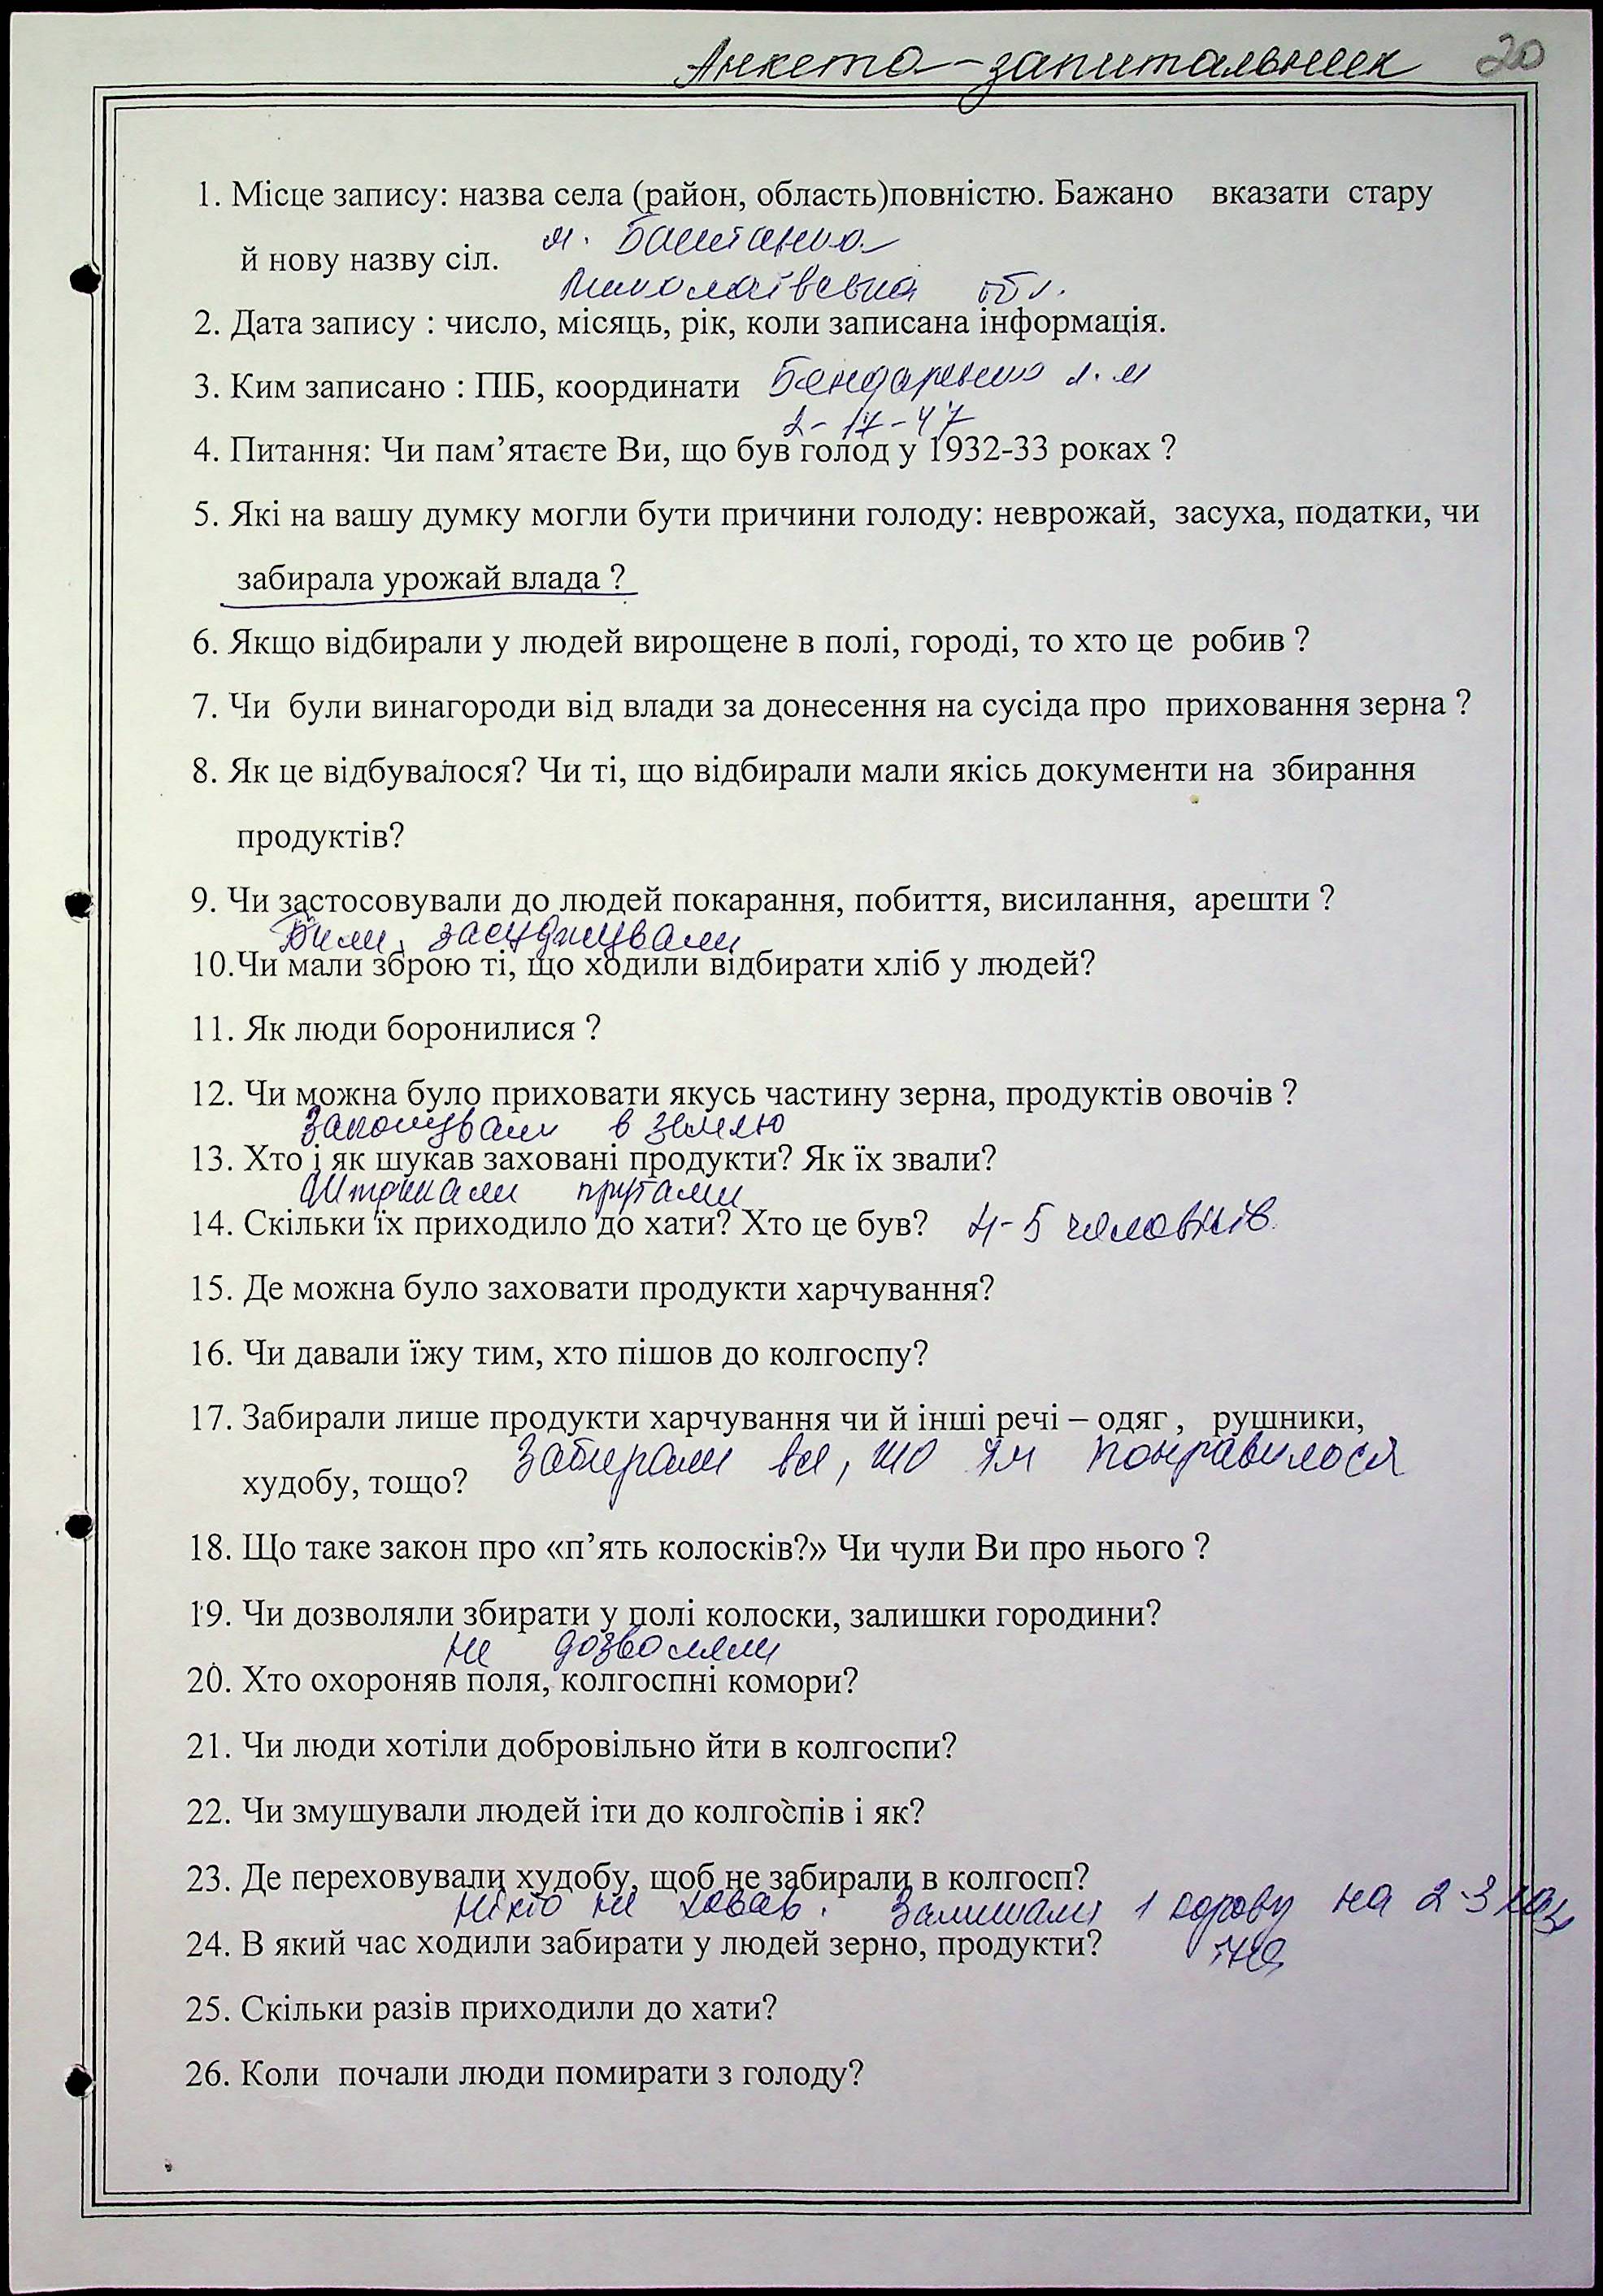 Анкета-запитальник 20
1. Місце запису: назва села (район, область)повністю. Бажано вказати стару
м. Баштанка
й нову назву сіл.
Миколаївська обл.
2. Дата запису : число, місяць, рік, коли записана інформація.
3. Ким записано : ПІБ, координати Бондаренко л. м
2-17-47
4. Питання: Чи пам’ятаєте Ви, що був голод у 1932-33 роках ?
5. Які на вашу думку могли бути причини голоду: неврожай, засуха, податки, чи
забирала урожай влада ?
6. Якщо відбирали у людей вирощене в полі, городі, то хто це робив ?
7. Чи були винагороди від влади за донесення на сусіда про приховання зерна ?
8. Як це відбувалося? Чи ті, що відбирали мали якісь документи на збирання
продуктів?
9. Чи застосовували до людей покарання, побиття, висилання, арешти ?
Били, засуджували
10.Чи мали зброю ті, що ходили відбирати хліб у людей?
11. Як люди боронилися ?
12. Чи можна було приховати якусь частину зерна, продуктів овочів ?
Закопували в землю
13. Хто і як шукав заховані продукти? Як їх звали?
штриками прутами
14. Скільки їх приходило до хати? Хто це був? 4-5 чоловіків.
15. Де можна було заховати продукти харчування?
16. Чи давали їжу тим, хто пішов до колгоспу?
17. Забирали лише продукти харчування чи й інші речі – одяг , рушники,
худобу, тощо? Забирали все, що їм понравилося
18. Що таке закон про «п’ять колосків?» Чи чули Ви про нього ?
19. Чи дозволяли збирати у полі колоски, залишки городини?
не дозволяли
20. Хто охороняв поля, колгоспні комори?
21. Чи люди хотіли добровільно йти в колгоспи?
22. Чи змушували людей іти до колгоспів і як?
23. Де переховували худобу, щоб не забирали в колгосп?
ніхто не ховав. Залишали 1 корову на 2-3 хазя
24. В який час ходили забирати у людей зерно, продукти? їна
25. Скільки разів приходили до хати?
26. Коли почали люди помирати з голоду?